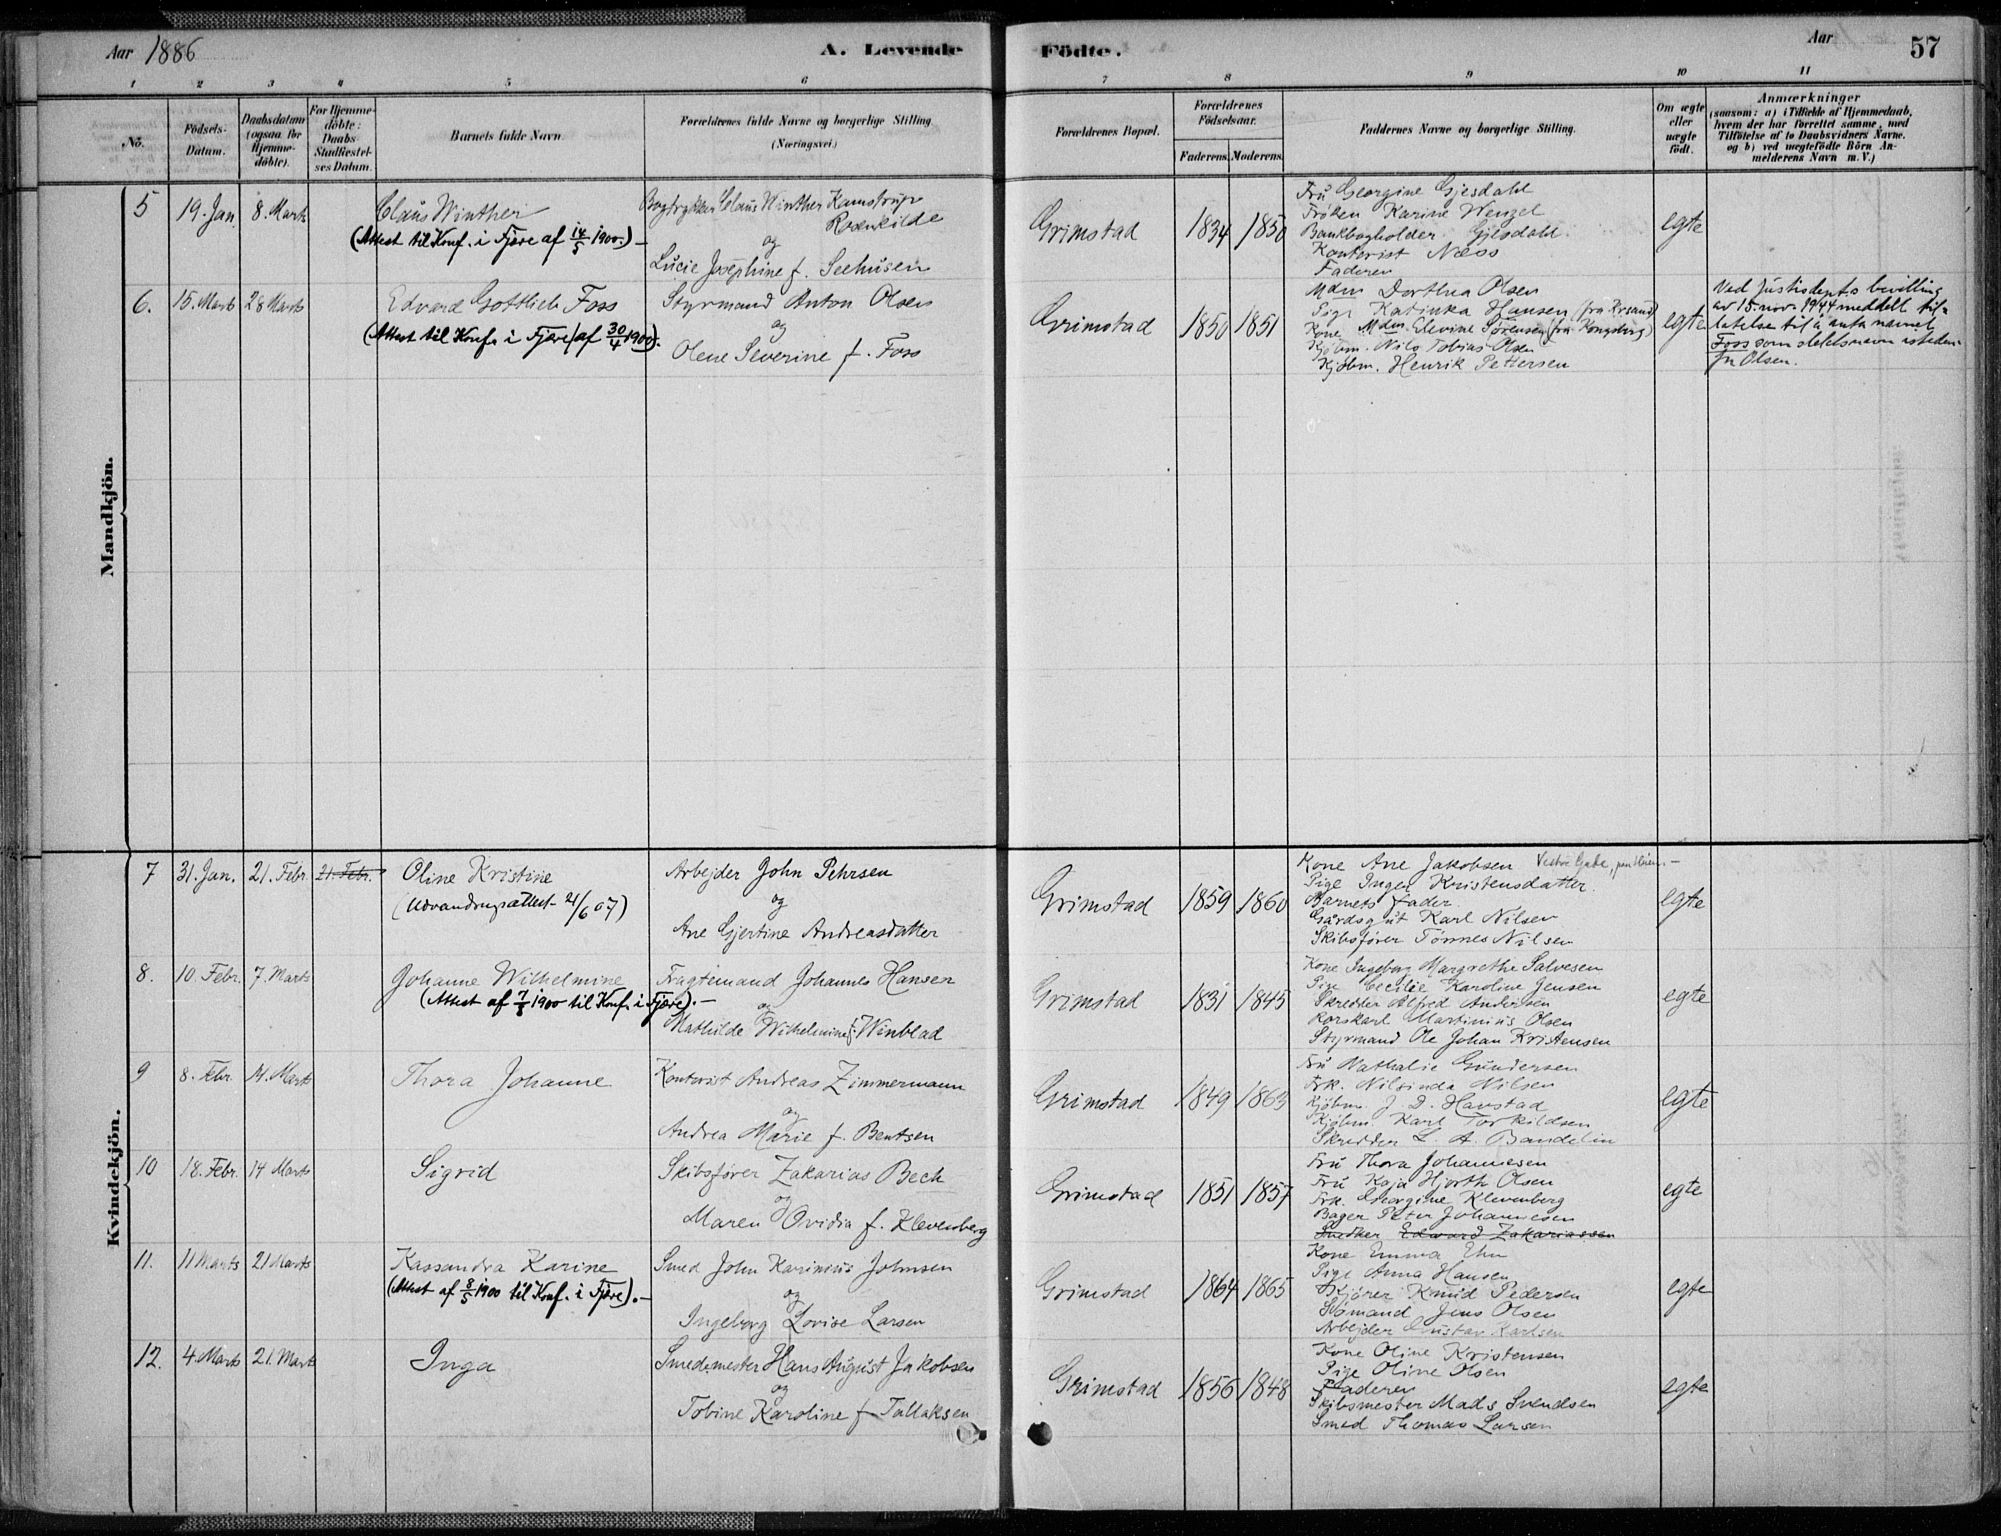 Aar 1886
A. Levende Födte.
Aar
57
1 2 3 4 5 6 7 8 9 10 11
No.
Födsels-
Datum.
Daabsdatum
(ogsaa for
Hjemme-
döbte).
For Hjemme-
döbte:
Daabs-
Stadfæstel-
ses Datum.
Barnets fulde Navn.
Forældrenes fulde Navne og borgerlige Stilling.
(Næringsvei.)
Forældrenes Bopæl.
Forældrenes
Födselsaar.
Faderens. Moderens.
Faddernes Navne og borgerlige Stilling.
Om ægte
eller
uægte
födt.
Anmærkninger
(saasom: a) i Tilfælde af Hjemmedaab,
hvem der har forrettet samme, med
Tilföielse af to Daabsvidners Navne.
og b) ved uægtefödte Börn An-
melderens Navn m. V.)
Mandkjön.
5
19. Jan.
8. Marts
Claus Winther
(Attest til Konf. i Fjære af 14/5 1900.) -
Bogtrykker Claus Winther Kamstrup
Rosenkilde
og
Lucie Josephine f. Seehusen
Grimstad
1834
1850
Fru Georgine Gjesdahl
Frøken Karine Wenzel
Bankbogholder Gjesdahl
Kontorist Næss
Faderen
egte
6.
15. Marts
28 Marts
Edvard Gottlieb Foss
(Attest til Konf. i Fjære af 30/4 1900).
Styrmand Anton Olsen
og
Olene Severine f. Foss
Grimstad
1850
1851
Mdm Dorthea Olsen
Pige Katinka Hansen (fra Krsand)
Kone Mdm. Elevine Sørensen (fra Kongsberg)
Kjøbm. Nils Tobias Olsen
Kjøbm. Henrik Pettersen
egte
Ved Justisdept.s bevilling
av 15. nov. 1944 meddelt til-
latelse til å anta navnet
Foss som slektsnavn isteden-
for Olsen.
Kvindekjön.
7
31. Jan.
21. Febr.
21. Febr.
Oline Kristine
(Udvandringsattest 21/6 07)
Arbejder John Pehrsen
og
Ane Gjertine Andreasdatter
Grimstad
1859
1860
Kone Ane Jakobsen Vestre Gade,
Pige Inger Kristensdatter.
Barnets Fader.
Gårdsgut Karl Nilsen
Skibsfører Tønnes Nilsen
egte
8.
10. Febr.
7. Marts
Johanne Wilhelmine
(Attest af 7/5 1900 til Konf. i Fjære). -
Fragtemand Johannes Hansen
og
Mathilde Wilhelmine f. Winblad
Grimstad
1831
1845
Kone Ingeborg Margrethe Salvesen
Pige Cecilie Karoline Jensen
Skredder Alfred Andersen
Rorskarl Martinius Olsen
Styrmand Ole Johan Kristensen
egte
9
8. Febr.
14. Marts
Thora Johanne
Kontorist Andreas Zimmermann
og
Andrea Marie f. Bentsen
Grimstad
1849
1863
Fru Nathalie Gundersen
Frk. Nilsinda Nilsen
Kjøbm. J. D. Havstad
Kjøbm. Karl Torkildsen
Skredder L. A. Bandelin
egte
10
18. Febr.
14 Marts
Sigrid
Skibsfører Zakarias Bech
og
Maren Ovidia f. Klevenberg
Grimstad
1851
1857
Fru Thora Johannesen
Fru Kaja Hjorth Olsen
Frk. Georgine Klevenberg
Bager Peter Johannesen
Snedker Edward Zakariassen
egte
11.
11 Marts
21 Marts
Kassandra Karine
(Attest af 8/5 1900 til Konf. i Fjære). -
Smed John Karinius Johnsen
og
Ingeborg Lovise Larsen
Grimstad
1864
1865
Kone Emma Ehn
Pige Anna Hansen
Kjører Knud Pedersen
Sømand Jens Olsen
Arbejder Gustav Karlsen
egte
12.
4. Marts
21. Marts
Inga
Smedemester Hans August Jakobsen
og
Tobine Karoline f Tallaksen
Grimstad
1856
1848
Kone Oline Kristensen
Pige Oline Olsen
Faderen
Skibsmester Mads Svendsen
Smed Thomas Larsen
egte